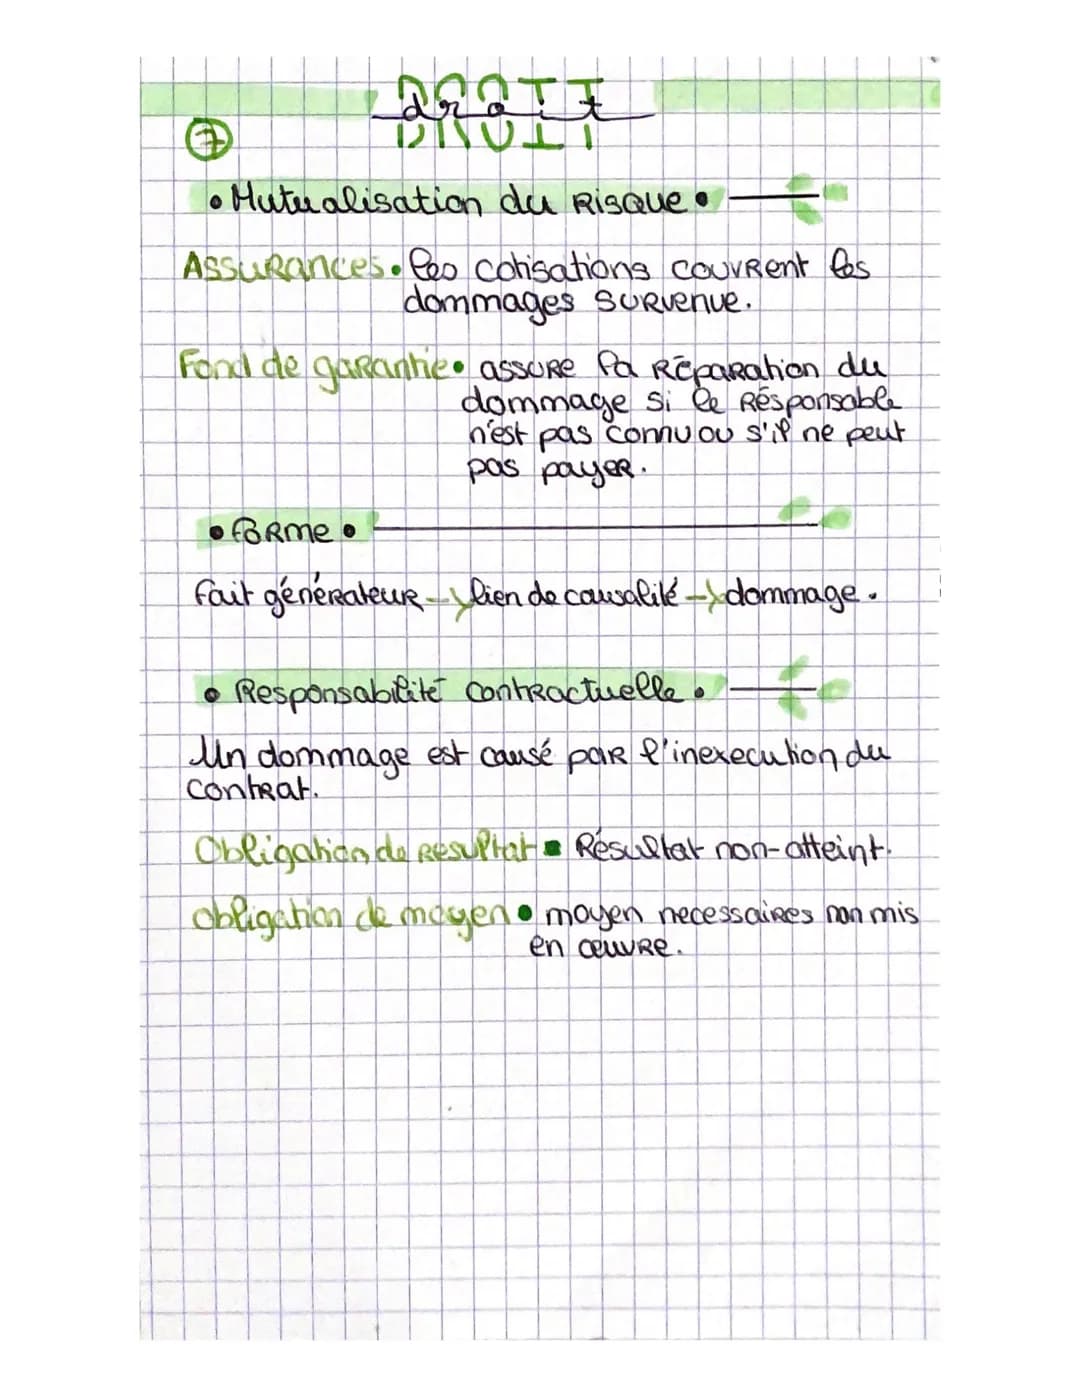 DROIT
droit
7
• Mutualisation du Risque •
Assurances • les cotisations couvrent les
dommages survenue.
Fond de garantie • assure la réparation du
dommage si le résponsable
n'est pas connu ou s'il ne peut
pas payer.
• forme •
fait générateur -> lien de causalité -> dommage.
• Responsabilité contractuelle •
Un dommage est causé par l'inexecution du
contrat.
Obligation de resultat • Résultat non-atteint.
Obligation de moyen • moyen necessaires non mis
en œuvre.